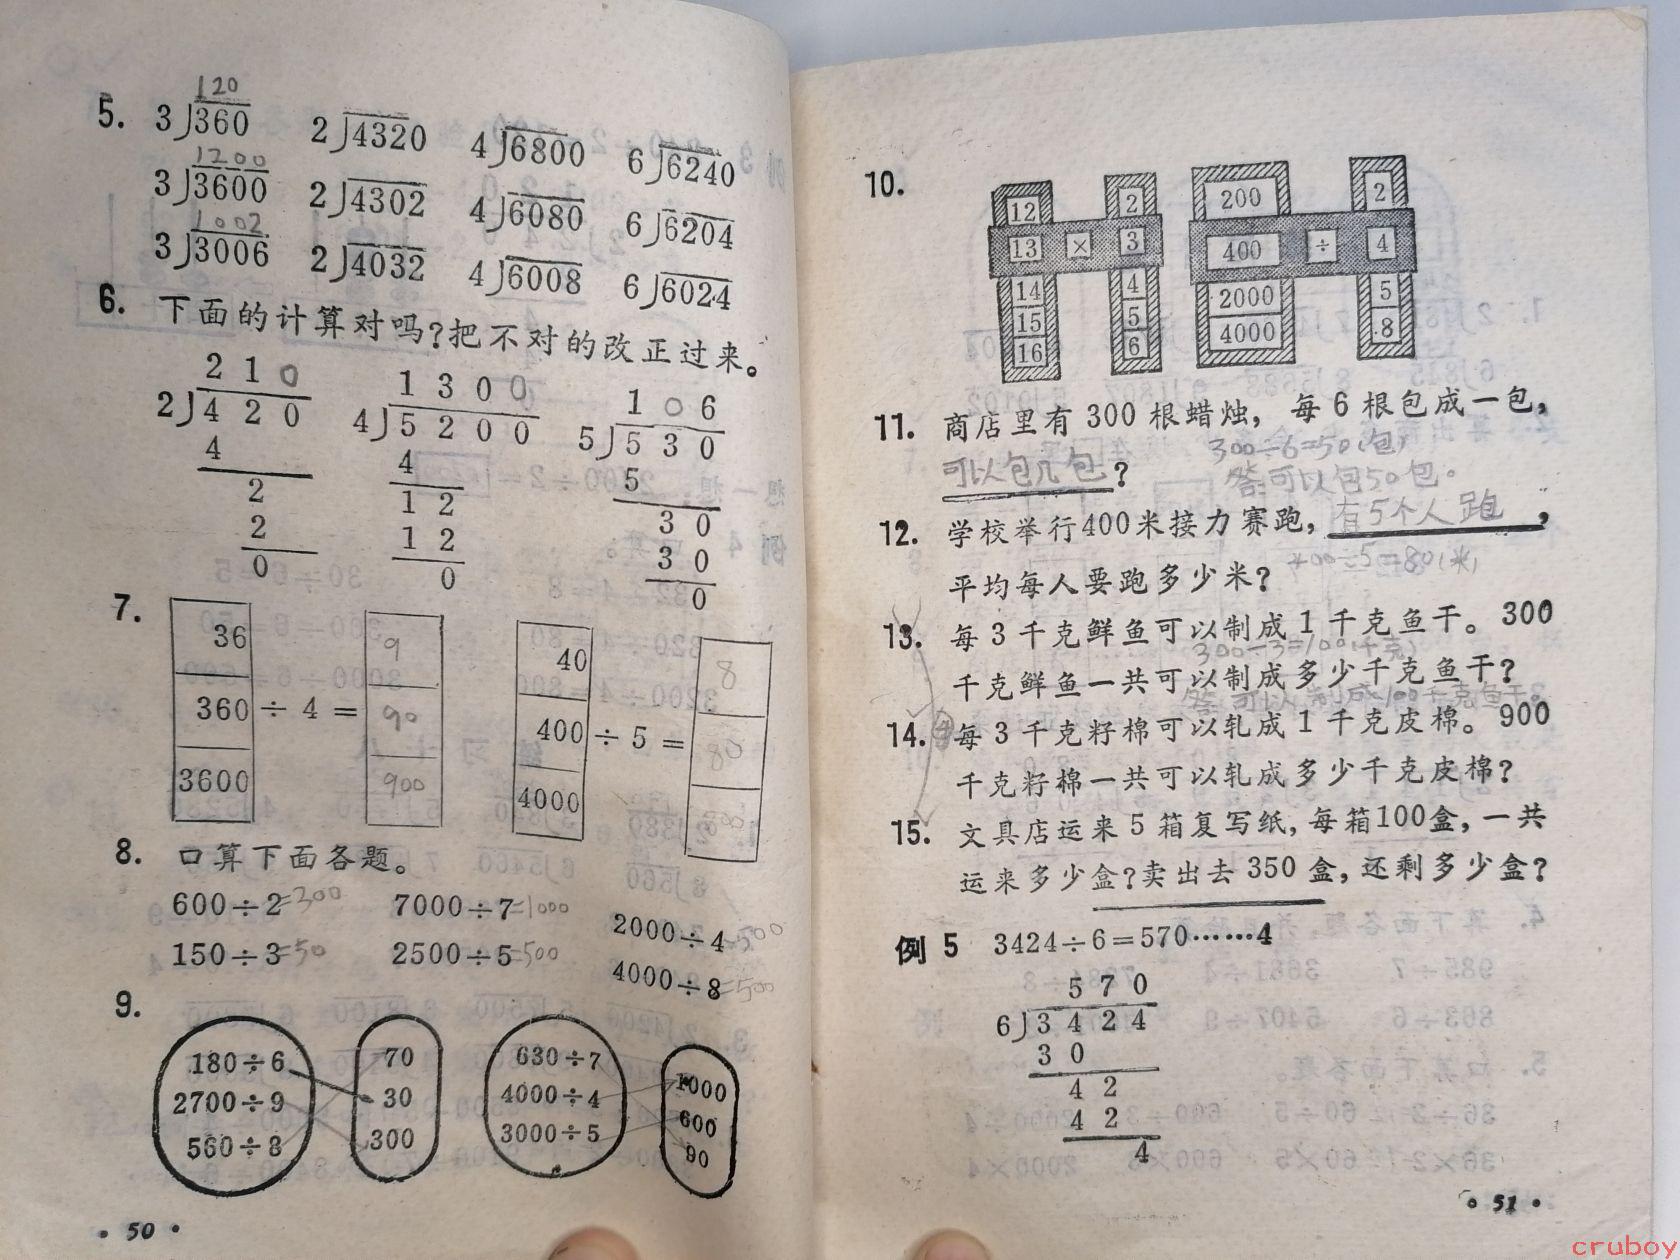 5. 3)360 120 2)4320 4)6800 6)6240
3)3600 1200 2)4302 4)6080 6)6204
3)3006 1002 2)4032 4)6008 6)6024
6. 下面的计算对吗?把不对的改正过来。
2 1 0
2)4 2 0
4
2
2
0
1 3 0 0
4)5 2 0 0
4
1 2
1 2
0
1 0 6
5)5 3 0
5
3 0
3 0
0
7.
36 9
360 ÷ 4 = 90
3600 900
40 8
400 ÷ 5 = 80
4000
8. 口算下面各题。
600÷2=300 7000÷7=1000 2000÷4=500
150÷3=50 2500÷5=500 4000÷8=500
9.
180÷6 70 630÷7 1000
2700÷9 30 4000÷4 600
560÷8 300 3000÷5 90
• 50 •
10.
12 2 200 2
13 × 3 400 ÷ 4
14 4 2000 5
15 5 4000 8
16 6
11. 商店里有 300 根蜡烛, 每 6 根包成一包,
300÷6=50(包)
可以包几包?
答:可以包50包。
12. 学校举行400米接力赛跑, 有5个人跑,
400÷5=80(米)
平均每人要跑多少米?
13. 每 3 千克鲜鱼可以制成 1 千克鱼干。300
300÷3=100(千克)
千克鲜鱼一共可以制成多少千克鱼干?
答:可以制成100千克鱼干。
14. 每 3 千克籽棉可以轧成 1 千克皮棉。900
千克籽棉一共可以轧成多少千克皮棉?
15. 文具店运来 5 箱复写纸, 每箱100盒, 一共
运来多少盒?卖出去 350 盒, 还剩多少盒?
例 5 3424÷6=570……4
5 7 0
6)3 4 2 4
3 0
4 2
4 2
4
• 51 •
cruboy